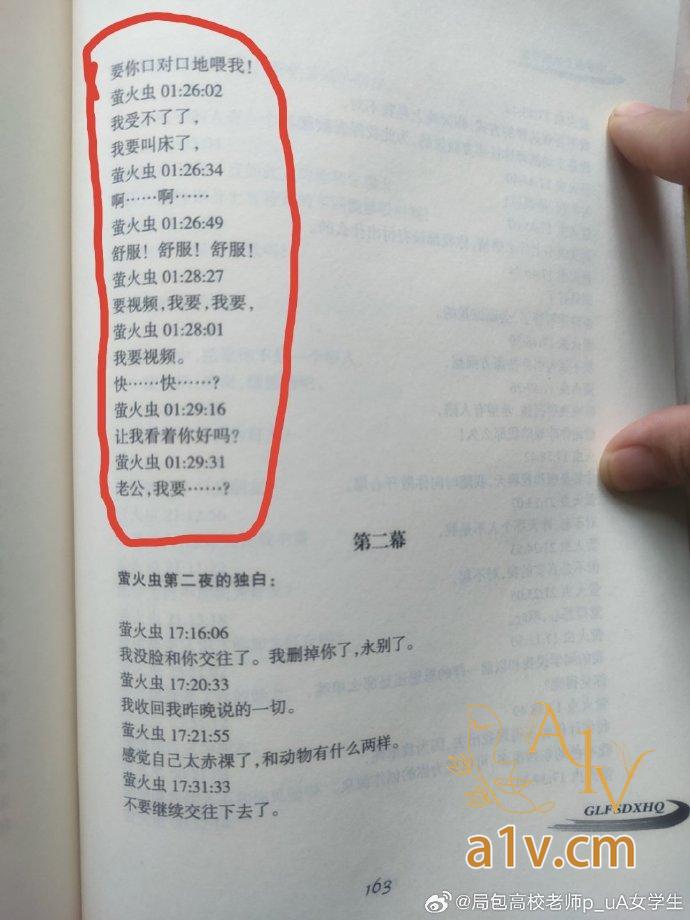 要你口对口地喂我！
萤火虫 01:26:02
我受不了了，
我要叫床了，
萤火虫 01:26:34
啊……啊……
萤火虫 01:26:49
舒服！舒服！舒服！
萤火虫 01:28:27
要视频，我要，我要，
萤火虫 01:28:01
我要视频。
快……快……？
萤火虫 01:29:16
让我看着你好吗？
萤火虫 01:29:31
老公，我要……？
第二幕
萤火虫第二夜的独白：
萤火虫 17:16:06
我没脸和你交往了。我删掉你了，永别了。
萤火虫 17:20:33
我收回我昨晚说的一切。
萤火虫 17:21:55
感觉自己太赤裸了，和动物有什么两样。
萤火虫 17:31:33
不要继续交往下去了。
A1V
GLFSDXHQ
a1v.cm
163
@局包高校老师p_uA女学生